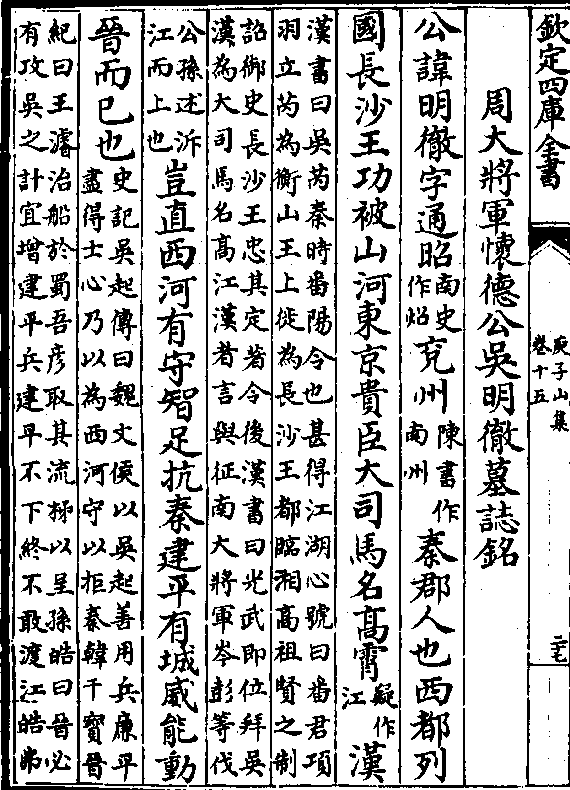 欽定四庫全書
庾子山集
卷十五
二七
周大將軍懷德公吳明徹墓誌銘
公諱明徹字通昭南史作炤兗州陳書作南州秦郡人也西都列
國長沙王功被山河東京貴臣大司馬名高霄疑作江漢
漢書曰吳芮秦時番陽令也甚得江湖心號曰番君項
羽立芮為衡山王上徙為長沙王都臨湘高祖賢之制
詔御史長沙王忠其定著令後漢書曰光武即位拜吳
漢為大司馬名高江漢者言與征南大將軍岑彭等伐
公孫述泝江而上也豈直西河有守智足抗秦建平有城威能動
晉而已也史記吳起傳曰魏文侯以吳起善用兵廉平
盡得士心乃以為西河守以拒秦韓干寶晉
紀曰王濬治船於蜀吾彦取其流柹以呈孫皓曰晉必
有攻吳之計宜增建平兵建平不下終不敢渡江皓弗